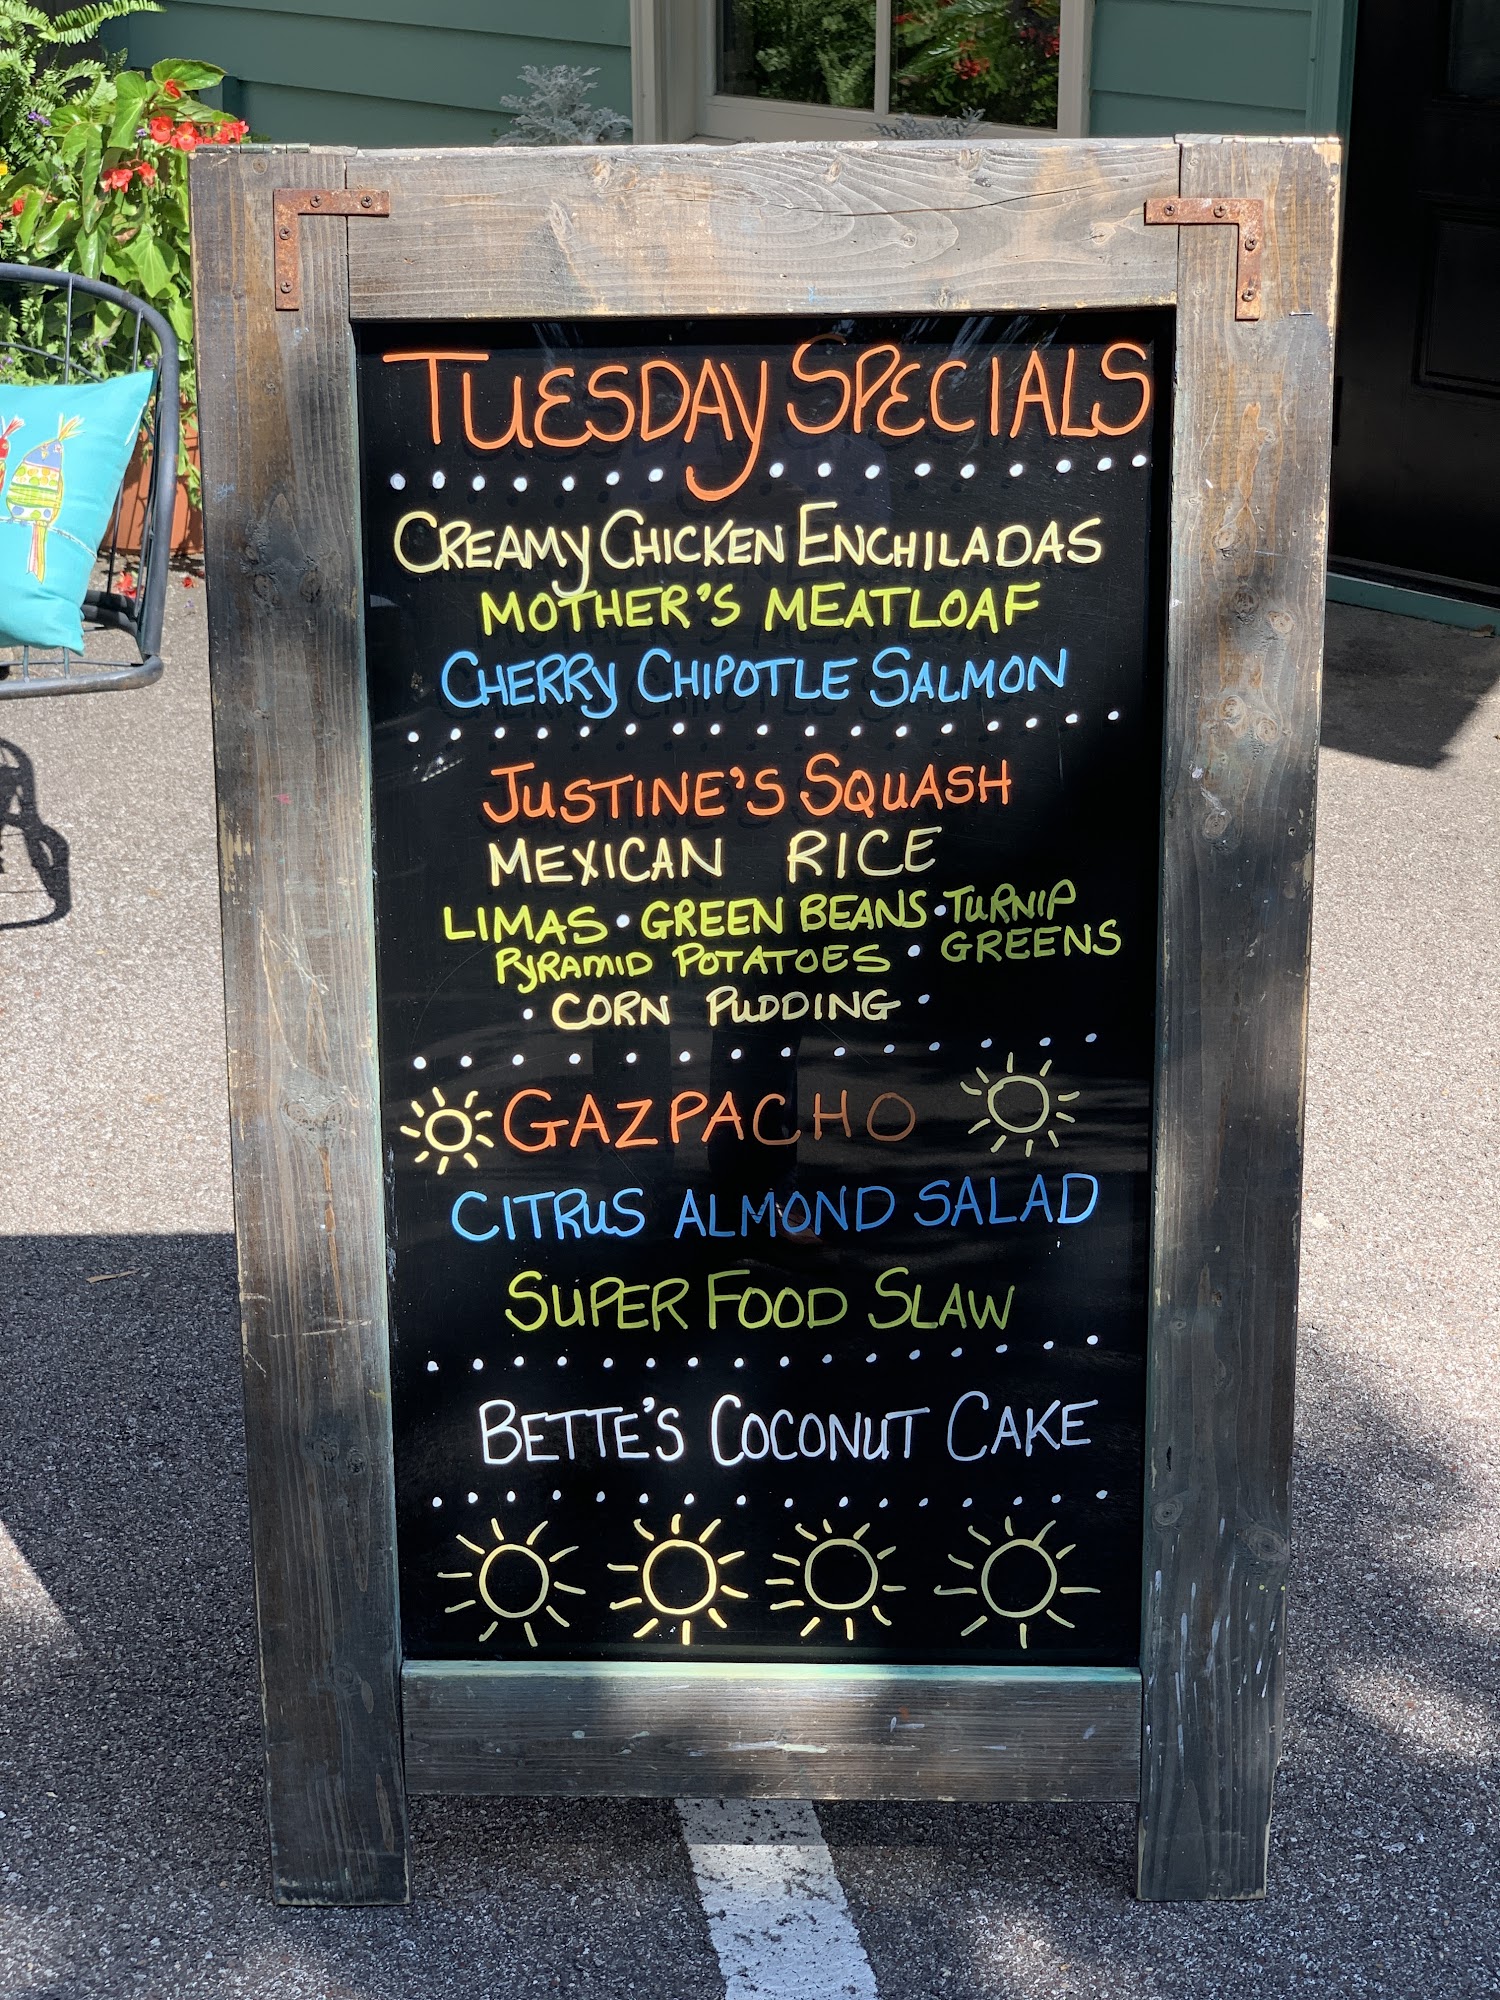 TUESDAY SPECIALS
CREAMY CHICKEN ENCHILADAS
MOTHER'S MEATLOAF
CHERRY CHIPOTLE SALMON
JUSTINE'S SQUASH
MEXICAN RICE
LIMAS • GREEN BEANS • TURNIP
PYRAMID POTATOES • GREENS
• CORN PUDDING •
GAZPACHO
CITRUS ALMOND SALAD
SUPER FOOD SLAW
BETTE'S COCONUT CAKE